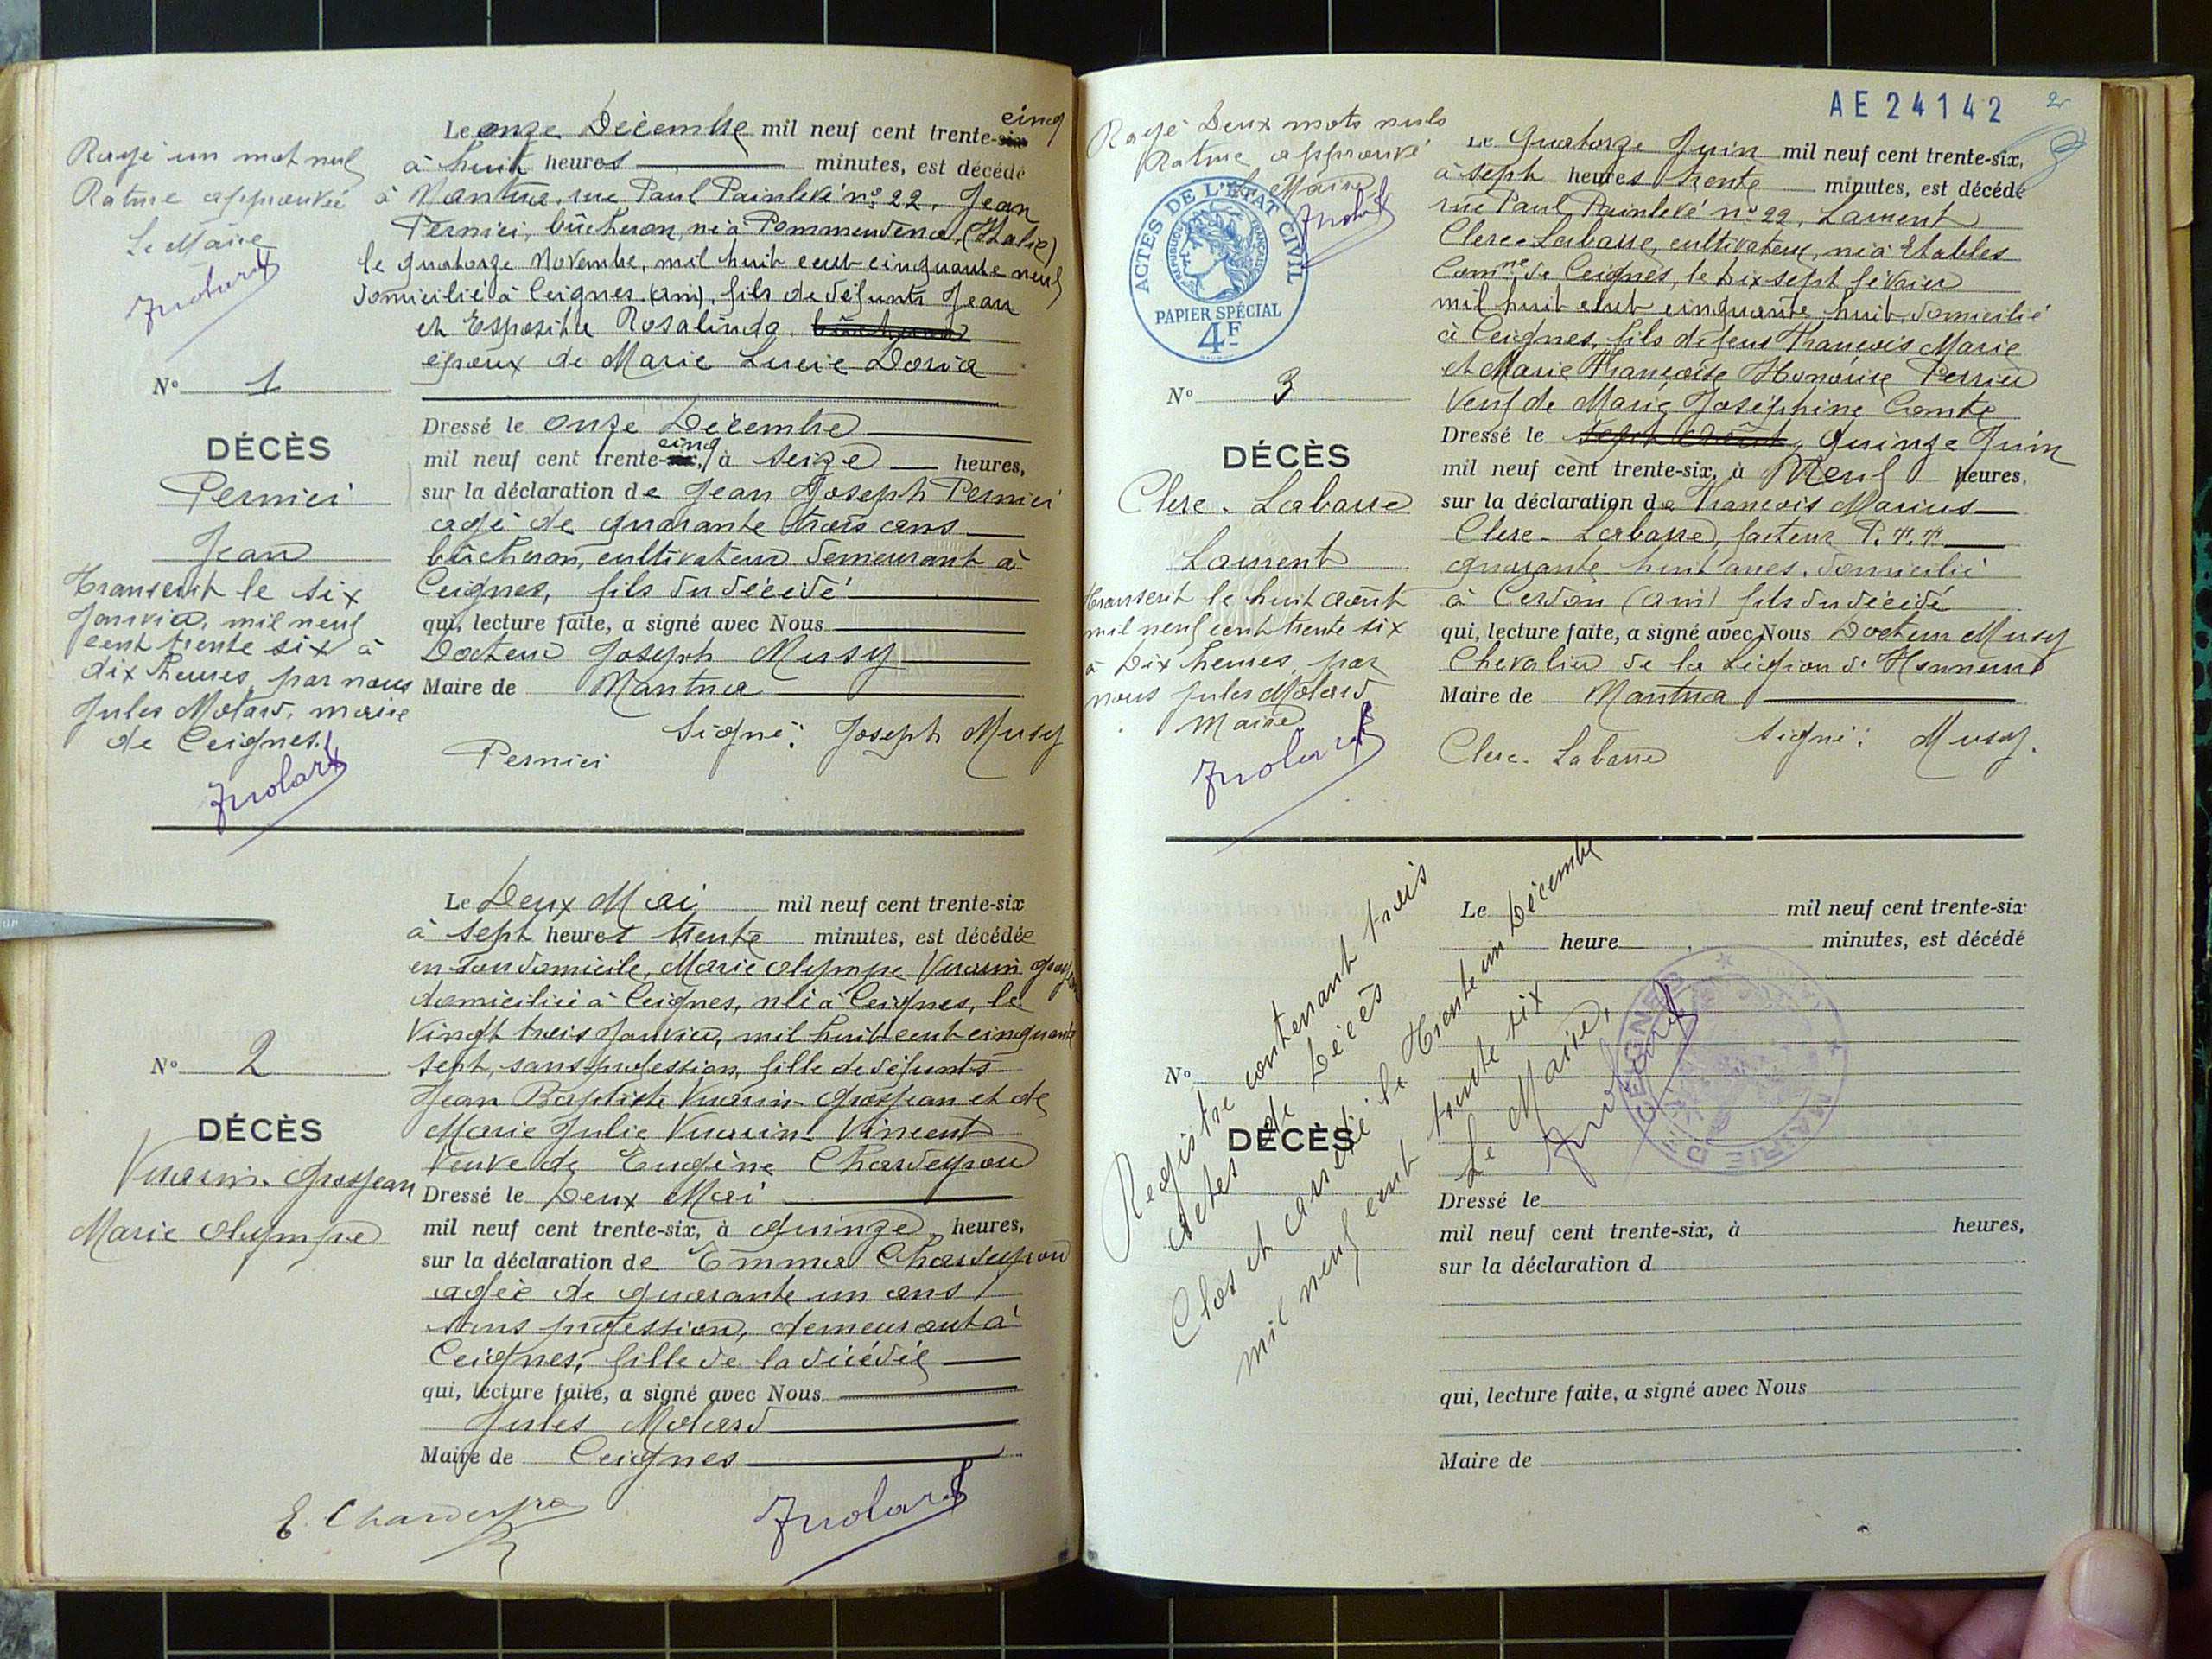 Rayé un mot nul
Rature approuvée
Le Maire
JMolard
N° 1
DÉCÈS
Pernici
Jean
Transcrit le six
Janvier, mil neuf
cent trente six à
dix heures, par nous
Jules Molard, maire
de Ceignes.
JMolard
Le onze Décembre mil neuf cent trente-six cinq
à huit heures minutes, est décédé
à Nantua, rue Paul Painlevé n° 22, Jean
Pernici, bûcheron, né à (Italie)
le quatorze Novembre, mil huit cent cinquante neuf
domicilié à Ceignes (Ain), fils de défunts Jean
et Esposito Rosalinda
époux de Marie Lucie Doria
Dressé le onze Décembre
mil neuf cent trente-cinq, à seize heures,
sur la déclaration de Jean Joseph Pernici
agé de quarante trois ans
bûcheron, cultivateur demeurant à
Ceignes, fils du décédé
qui, lecture faite, a signé avec Nous
Docteur Joseph Musy
Maire de Nantua
Signé: Joseph Musy
Pernici
N° 2
DÉCÈS
Vuarin-Grosjean
Marie Olympe
Le Deux Mai mil neuf cent trente-six
à sept heures trente minutes, est décédée
en son domicile, Marie Olympe Vuarin Grosjean
domiciliée à Ceignes, née à Ceignes, le
Vingt trois Janvier, mil huit cent cinquante
sept, sans profession, fille de défunts
Jean Baptiste Vuarin-Grosjean et de
Marie Julie Vuarin-Vincent
Veuve de Eugène Chardeyron
Dressé le Deux Mai
mil neuf cent trente-six, à quinze heures,
sur la déclaration de Emma Chardeyron
agée de quarante un ans
sans profession, demeurant à
Ceignes, fille de la décédée
qui, lecture faite, a signé avec Nous
Jules Molard
Maire de Ceignes
E. Chardeyron
JMolard
AE 24142
2
Rayé Deux mots nuls
Rature approuvé
Le Maire
JMolard
ACTES DE L'ÉTAT CIVIL
RÉPUBLIQUE FRANÇAISE
PAPIER SPÉCIAL
4F
N° 3
DÉCÈS
Clerc-Labarre
Laurent
Transcrit le huit août
mil neuf cent trente six
à Dix heures, par
nous Jules Molard
Maire
JMolard
Le Quatorze Juin mil neuf cent trente-six,
à sept heures trente minutes, est décédé
rue Paul Painlevé n° 22, Laurent
Clerc-Labarre, cultivateur, né à Etables
Comne de Ceignes, le Dix sept février
mil huit cent cinquante huit, domicilié
à Ceignes, fils de feus François Marie
et Marie Françoise Honorise Perrier
Veuf de Marie Joséphine Comte
Dressé le sept Août, Quinze Juin
mil neuf cent trente-six, à Neuf heures,
sur la déclaration de François Marius
Clerc-Labarre, facteur P.T.T.
quarante huit ans, domicilié
à Cerdon (Ain) fils du décédé
qui, lecture faite, a signé avec Nous Docteur Musy
Chevalier de la Légion d'Honneur
Maire de Nantua
Signé: Musy.
Clerc-Labarre
N°
DÉCÈS
Le mil neuf cent trente-six
heure minutes, est décédé
Dressé le
mil neuf cent trente-six, à heures,
sur la déclaration d
qui, lecture faite, a signé avec Nous
Maire de
Registre contenant trois
actes de Décès
Clos et arrêté le Trente un Décembre
mil neuf cent trente six
Le Maire,
JMolard
MAIRIE DE CEIGNES